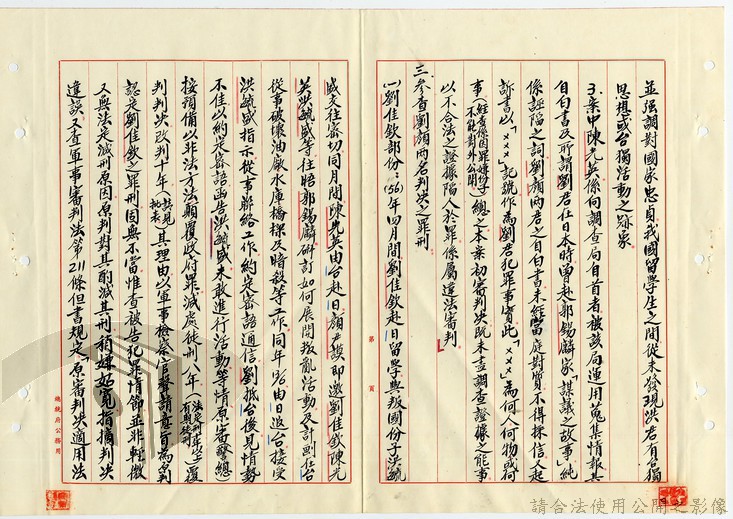 並強調對國家忠貞我國留學生之間從未發現洪君有台獨
思想或台獨活動之跡象
3.案中陳光英係向調查局自首者被該局運用蒐集情報其
自白書及所謂劉君在日本時曾赴郭錫麟家「謀議之故事」純
係誣陷之詞劉顏兩君之自白書未經當庭對質不得採信又起
訴書以「×××」記號作為劉君犯罪事實此「×××」為何人何物或何
事(經查係因罪嫌份子不能對外公開)總之本案初審判決既未盡調查證據之能事
以不合法之證據陷人於罪係屬違法審判」
三參查劉顏兩名判決之罪刑
㈠劉佳欽部份：(56)年四月間劉佳欽赴日留學與叛國份子洪毓
盛交往密切同月間陳光英由台赴日顏尹謨即邀劉佳欽陳光
英洪毓盛等往晤郭錫麟研訂如何展開叛亂活動及計劃在台
從事破壞油廠水庫橋樑及暗殺等工作同年
由日返台接受
洪毓盛指示從事聯絡工作約定密語通信劉抵台後見情勢
不佳以約定密語函告洪毓盛未敢進行活動等情原審擊總
按預備以非法方法顛覆政府罪減處徒刑八年(法定刑十年以上有期徒刑)覆
判判決改判十年(批見批表)其理由以軍事檢察官聲請意旨為名判
認定劉佳欽之罪刑固無不當惟查被告犯罪情節並非輕微
又無法定減刑原因原判對其酌減其刑稍嫌姑寬指摘判決
違誤又查軍事審判法第211條但書規定原審判決適用法
第 頁
總統府公務用
請合法使用公開之影像